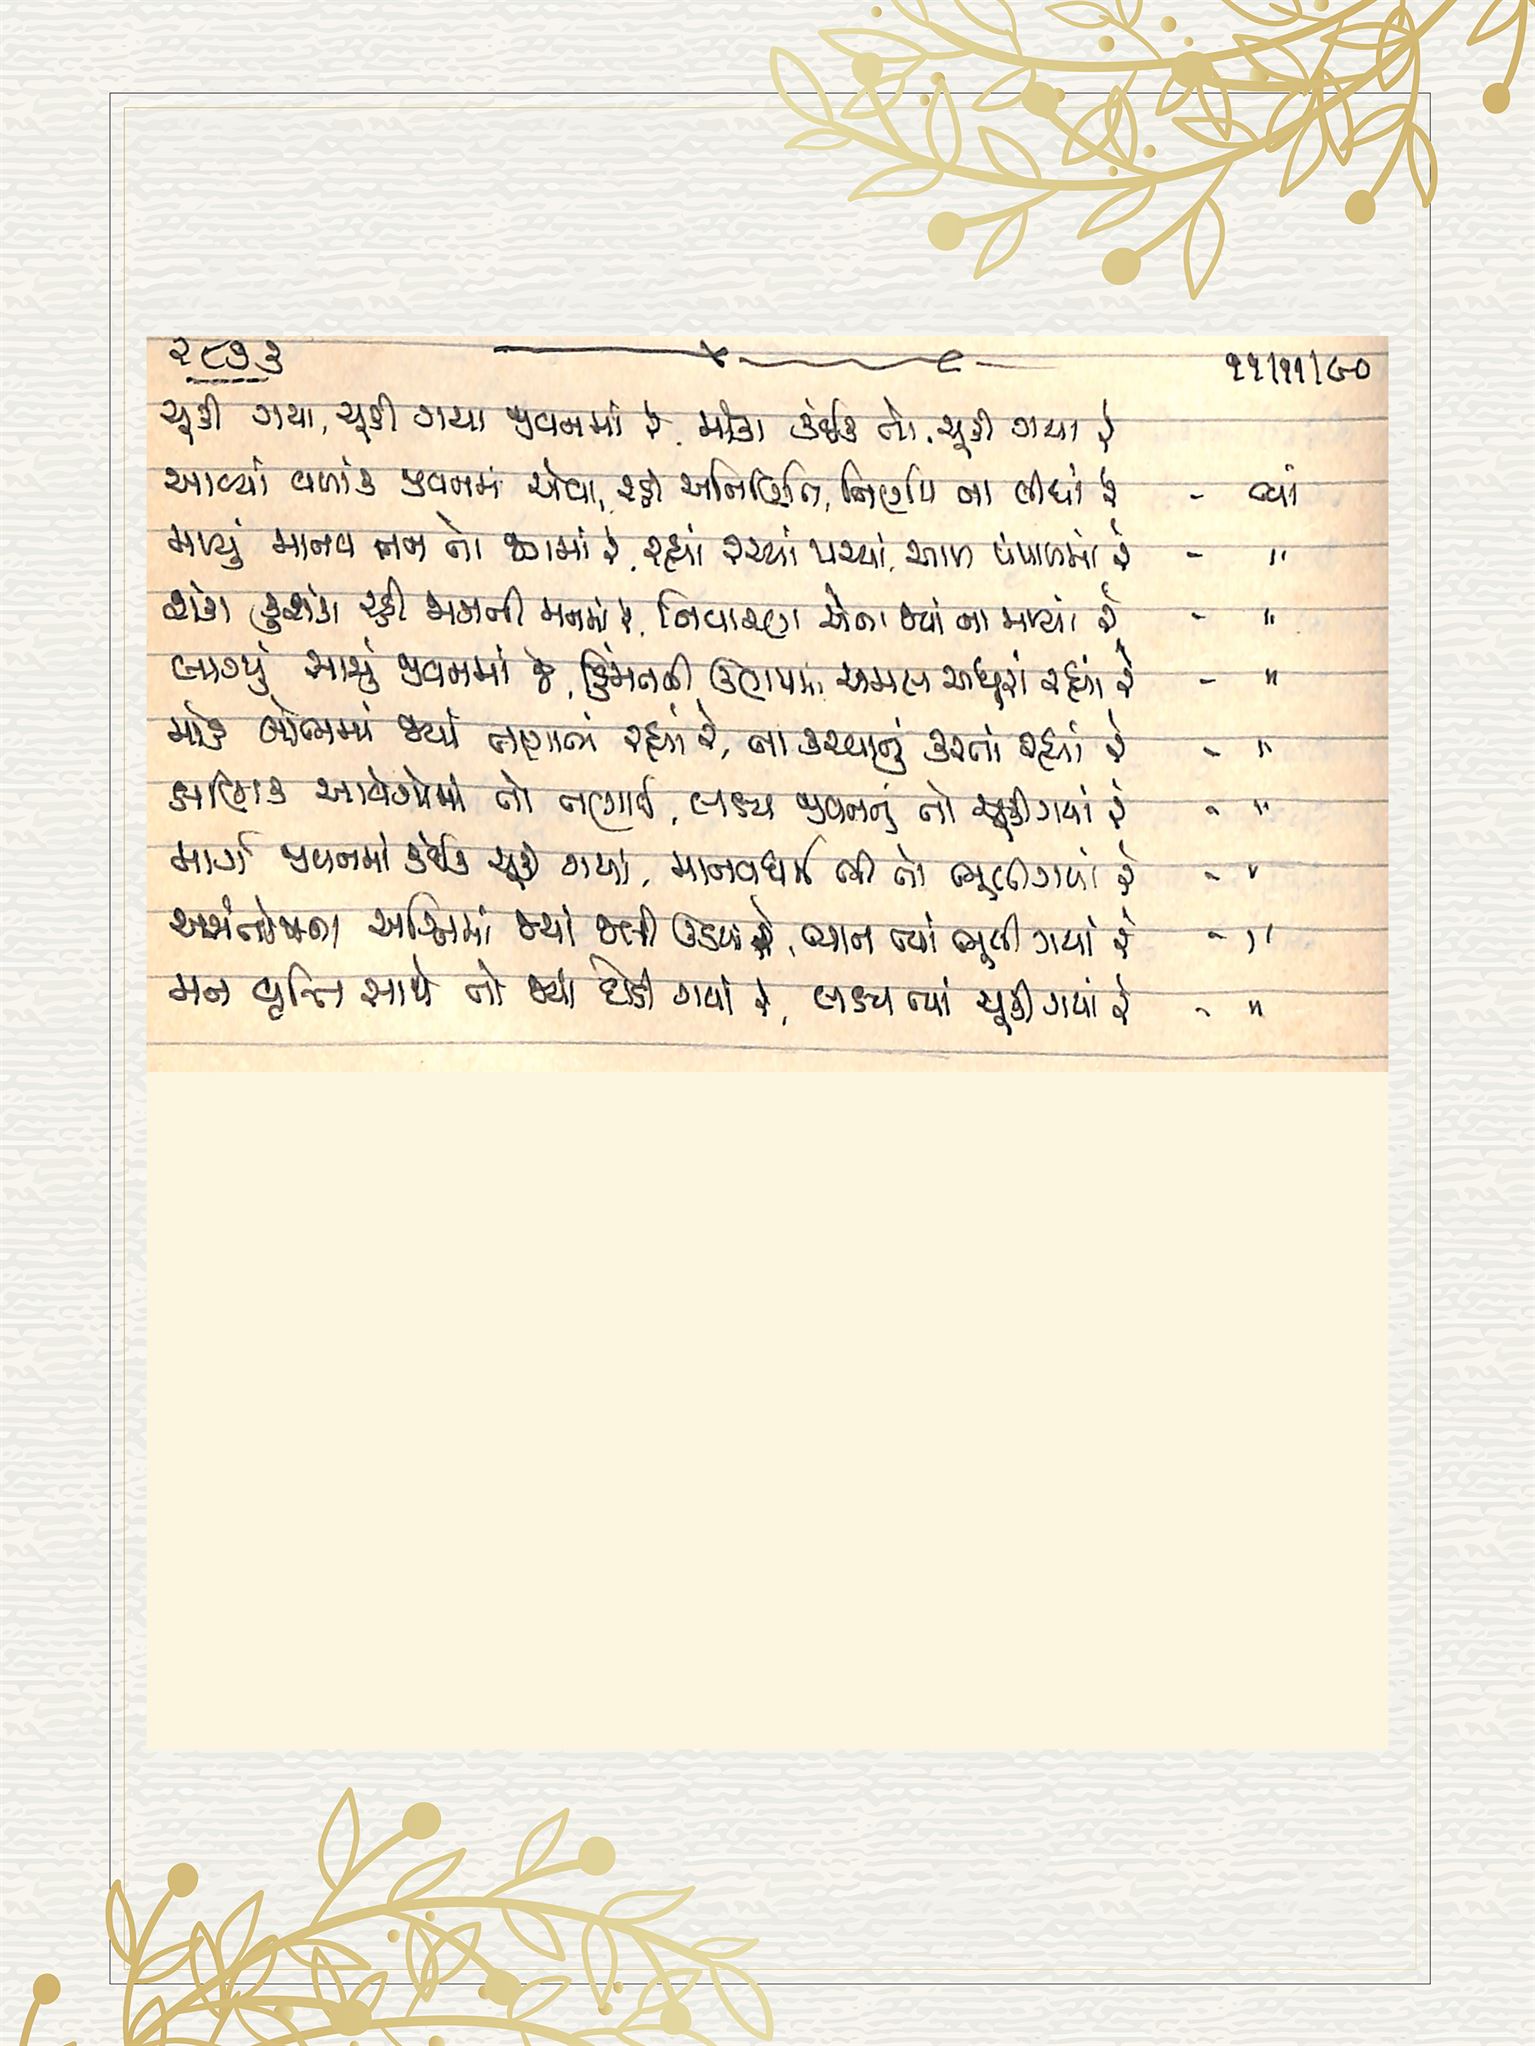 ૨૮૭૩ ૧૧/૧૧/૯૦
ચૂકી ગયા, ચૂકી ગયા જીવનમાં રે, મોકા કંઈક તો, ચૂકી ગયા રે
આવ્યાં વળાંક જીવનમાં એવા, રહી અનિર્ણિત, નિર્ણય ના લીધાં રે - ત્યાં
મળ્યું માનવ તન તો જગમાં રે, રહ્યાં રચ્યાં પચ્યાં, આળ પંપાળમાં રે - "
શંકા કુશંકા રહી મનની મનમાં રે, નિવારણ એના જ્યાં ના મળ્યાં રે - "
લાગ્યું સાચું જીવનમાં જે, હિંમતની ઉણપમાં અમલ અધૂરાં રહ્યાં રે - "
મોકે લોભમાં જ્યાં તણાતાં રહ્યાં રે, ના કરવાનું કરતાં રહ્યાં રે - "
ક્ષણિક આવેગોમાં તો તણાઈ, લક્ષ્ય જીવનનું તો ચૂકી ગયાં રે - "
માર્ગ જીવનમાં કંઈક ચૂકી ગયાં, માનવધર્મ ભી તો ભૂલી ગયાં રે - "
અસંતોષના અગ્નિમાં જ્યાં જલી ઉઠયાં રે, ભાન ત્યાં ભૂલી ગયાં રે - "
મન વૃત્તિ સાથે તો જ્યાં દોડી ગયાં રે, લક્ષ્ય ત્યાં ચૂકી ગયાં રે - "